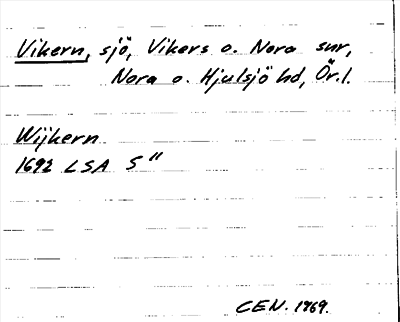 Vikern, sjö, Vikers o. Nora snr,
Nora o. Hjulsjö hd, Ör. l.
Wijkern
1692 LSA S"
CEN. 1969.